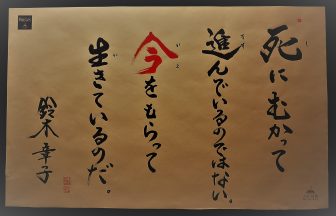 死にむかって
進んでいるのではない。
今をもらって
生きているのだ。
鈴木章子